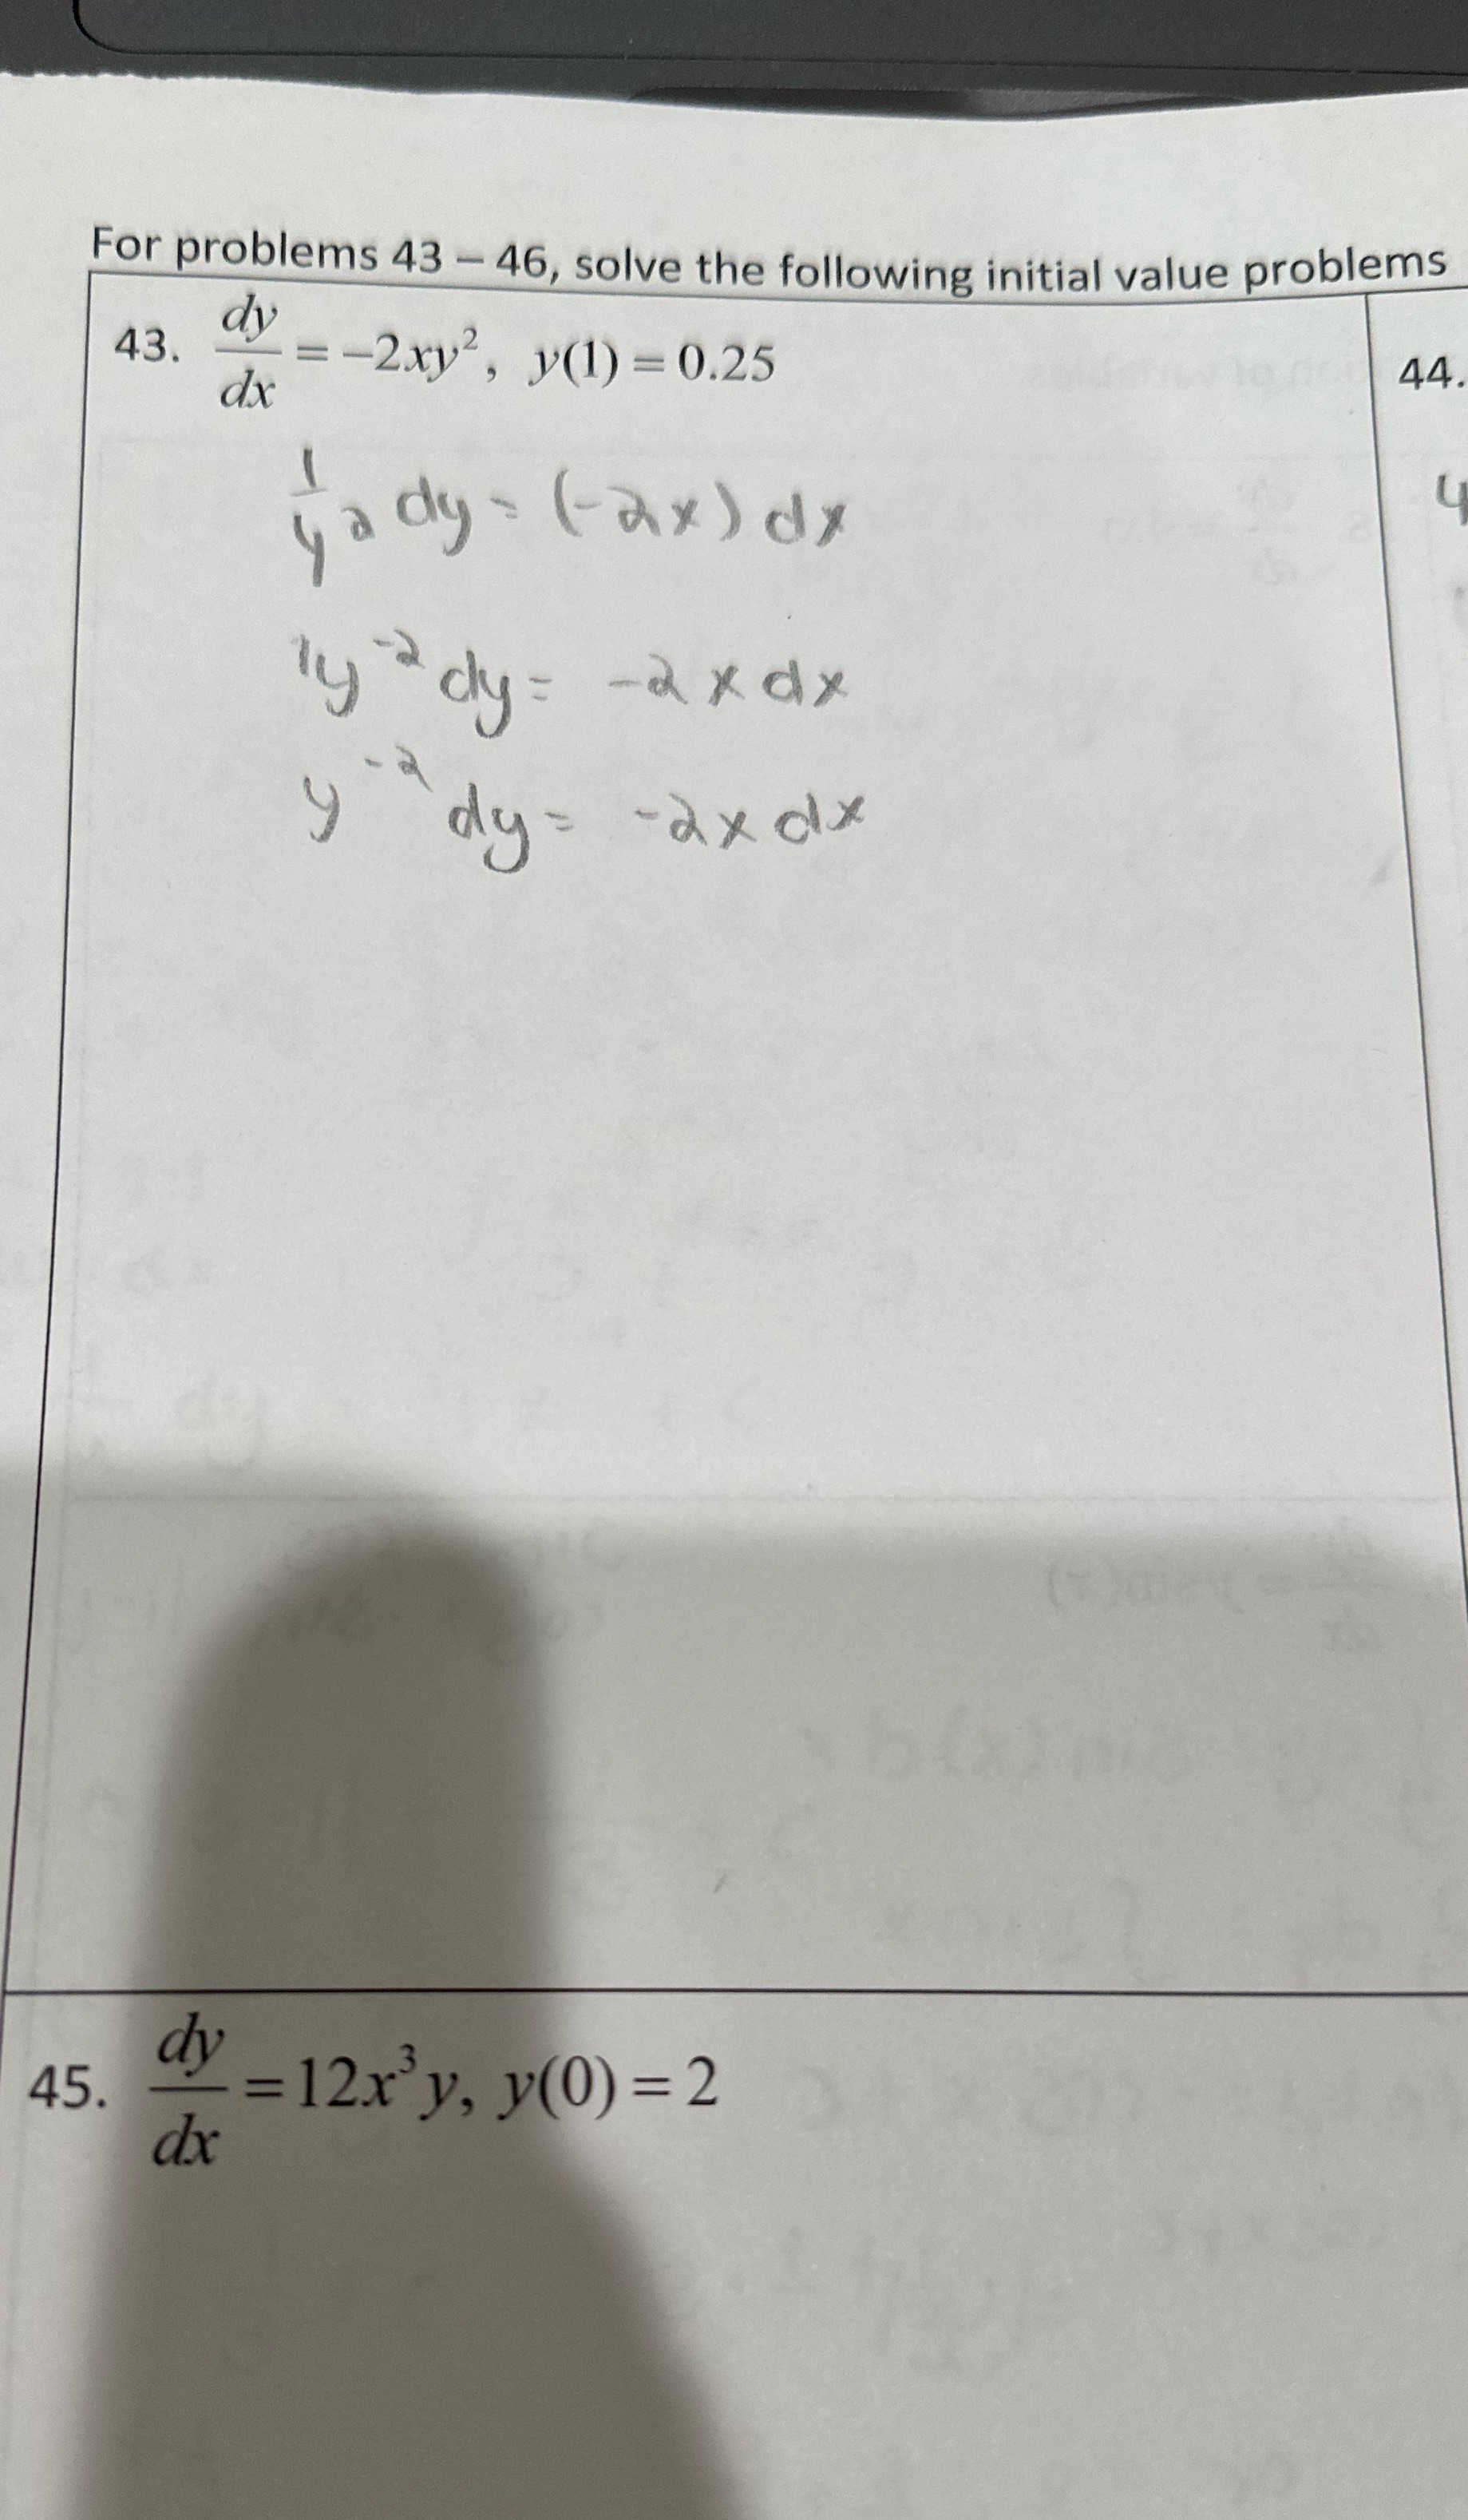 For problems 43 – 46, solve the following initial value problems
43. dy/dx = -2xy², y(1) = 0.25
44.
1/y² dy = (-2x) dx
y
1y⁻² dy = -2x dx
y⁻² dy = -2x dx
45. dy/dx = 12x³y, y(0) = 2